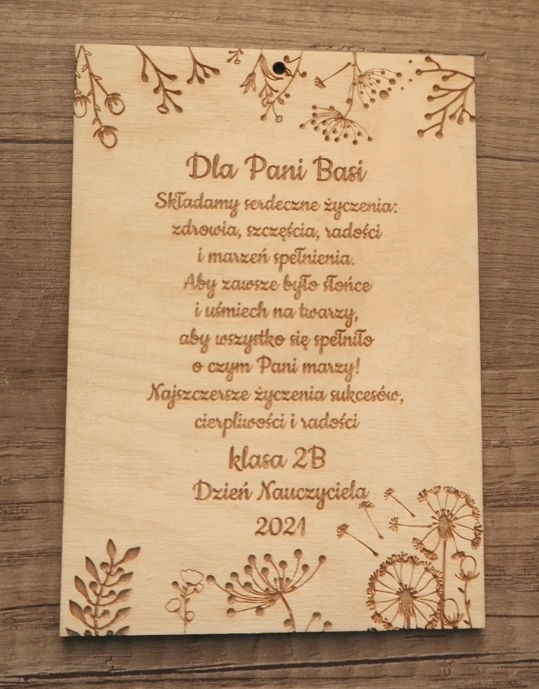 Dla Pani Basi
Składamy serdeczne życzenia:
zdrowia, szczęścia, radości
i marzeń spełnienia.
Aby zawsze było słońce
i uśmiech na twarzy,
aby wszystko się spełniło
o czym Pani marzy!
Najszczersze życzenia sukcesów,
cierpliwości i radości
klasa 2B
Dzień Nauczyciela
2021